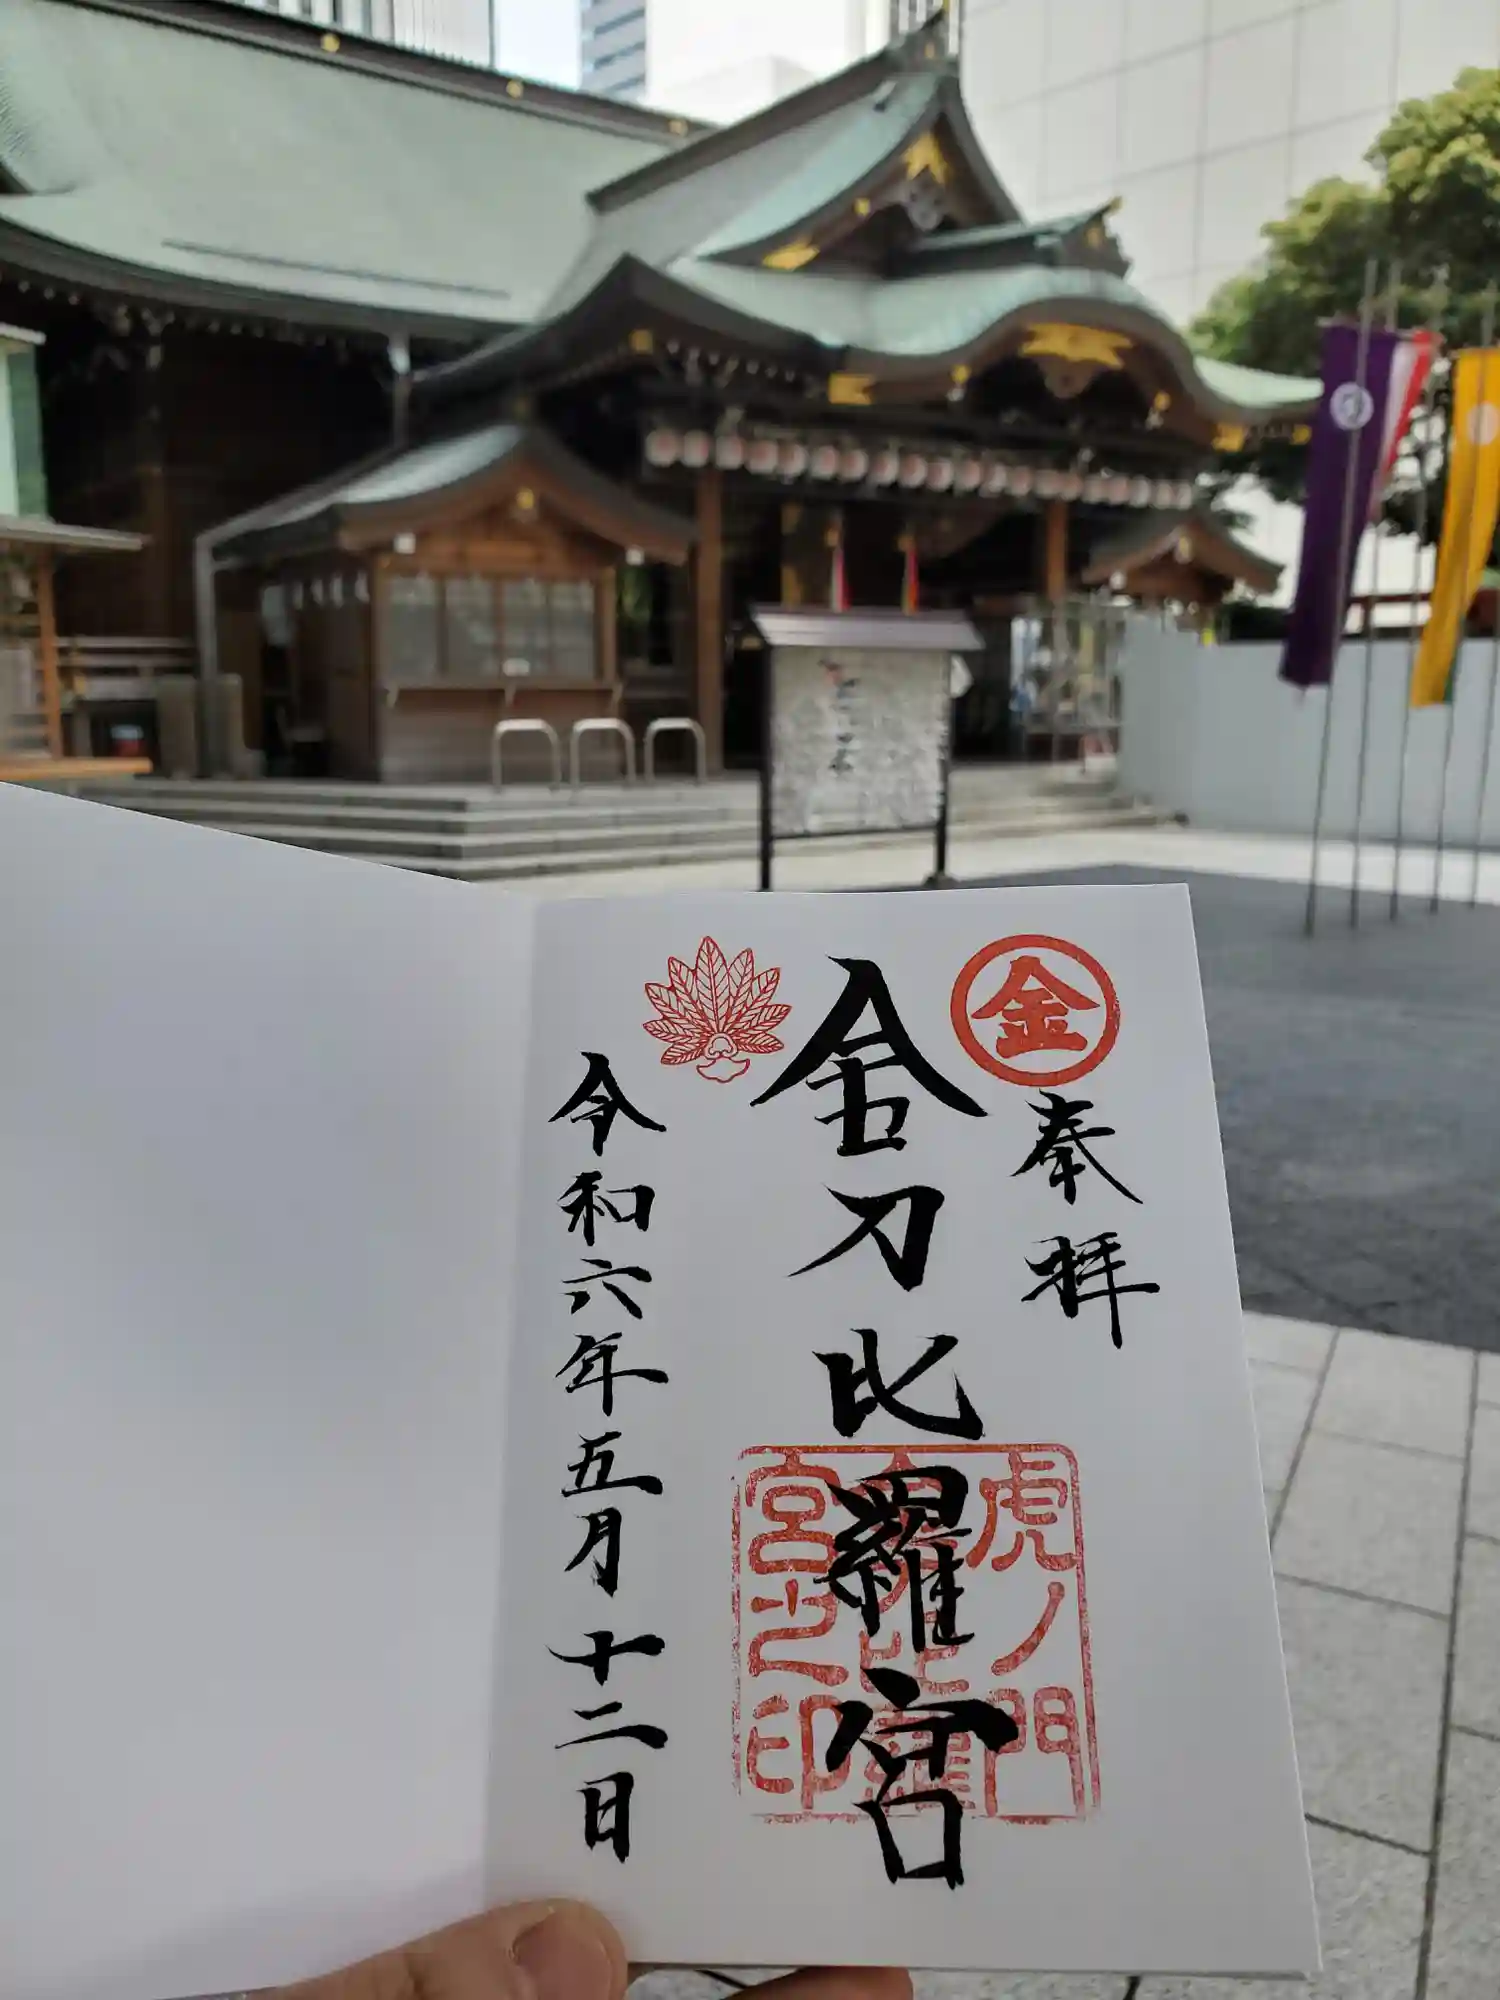 金
奉拝
金刀比羅宮
虎ノ門
金刀比羅
宮之印
令和六年五月十二日